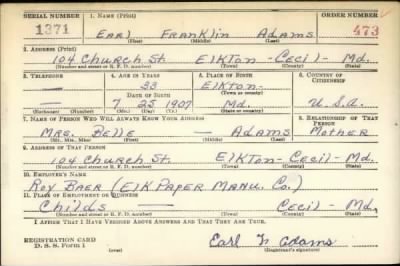 SERIAL NUMBER 1. NAME (Print) ORDER NUMBER
1371 Earl Franklin Adams 473
(First) (Middle) (Last)
2. ADDRESS (Print)
104 Church St. Elkton - Cecil - Md.
(Number and street or R. F. D. number) (Town) (County) (State)
3. TELEPHONE 4. AGE IN YEARS 5. PLACE OF BIRTH 6. COUNTRY OF CITIZENSHIP
— 33 Elkton -
DATE OF BIRTH (Town or county)
— 7 25 1907 Md. U.S.A.
(Exchange) (Number) (Mo.) (Day) (Yr.) (State or country)
7. NAME OF PERSON WHO WILL ALWAYS KNOW YOUR ADDRESS 8. RELATIONSHIP OF THAT PERSON
Mrs. Belle — Adams Mother
(Mr., Mrs., Miss) (First) (Middle) (Last)
9. ADDRESS OF THAT PERSON
104 Church St. Elkton - Cecil - Md.
(Number and street or R. F. D. number) (Town) (County) (State)
10. EMPLOYER'S NAME
Roy Baer (Elk Paper Manu. Co.)
11. PLACE OF EMPLOYMENT OR BUSINESS
Childs — Cecil - Md.
(Number and street or R. F. D. number) (Town) (County) (State)
I AFFIRM THAT I HAVE VERIFIED ABOVE ANSWERS AND THAT THEY ARE TRUE.
REGISTRATION CARD
D. S. S. Form 1 (over) Earl Adams
(Registrant's signature)